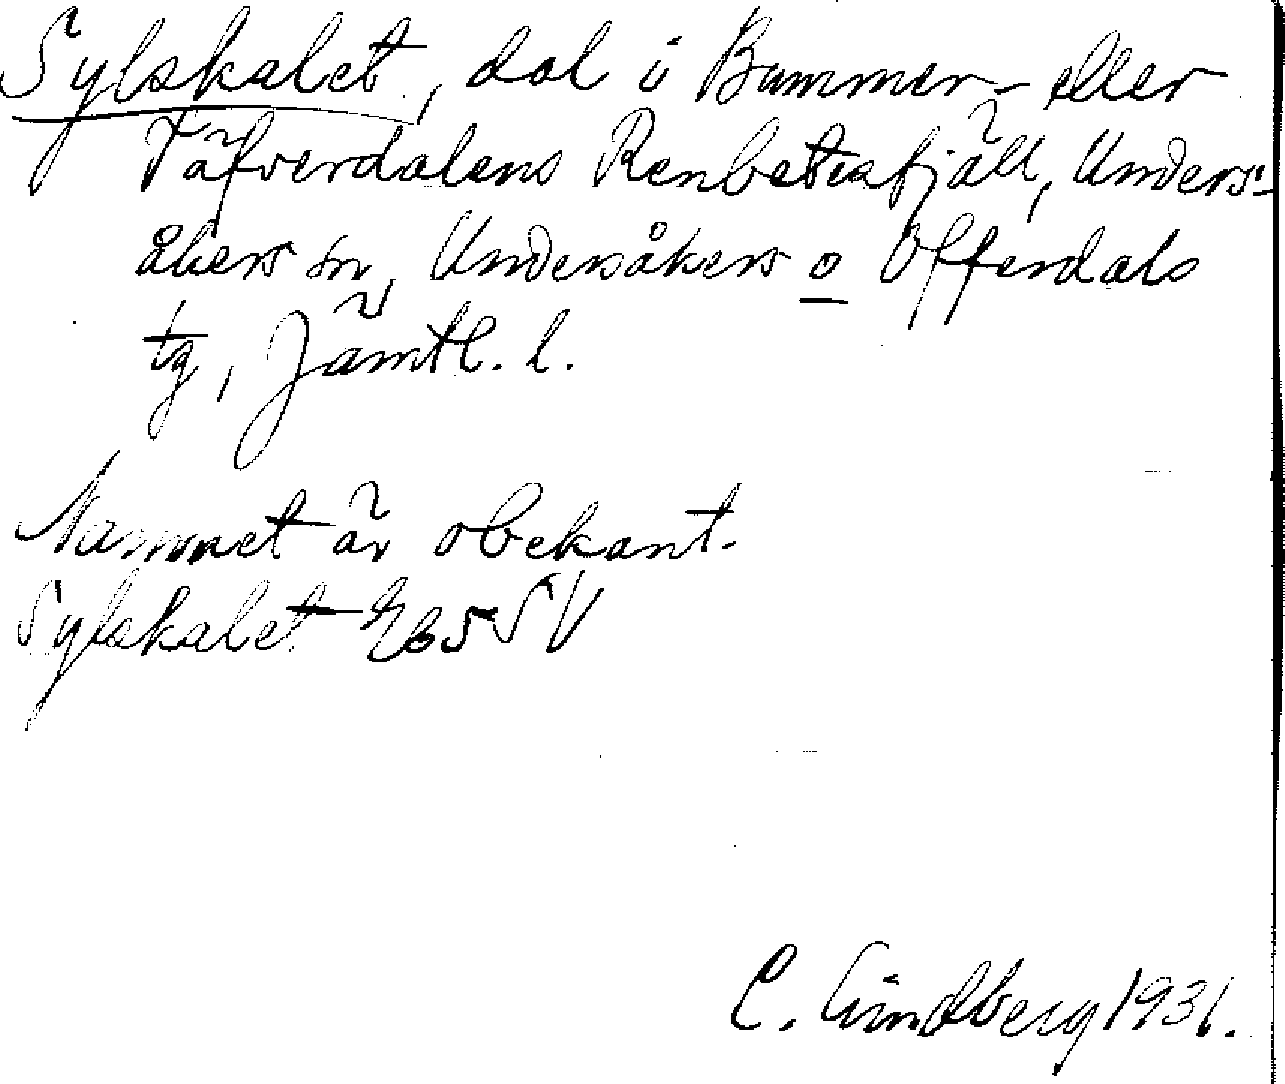 Sylskalet, dal i Bummer- eller
Täfverdalens Renbetesfjäll, Unders-
åkers sn, Undersåkers o Offerdals
tg, Jämtl. l.
Namnet är obekant.
Sylskalet Eb 5 SV
C. Lindberg 1931.